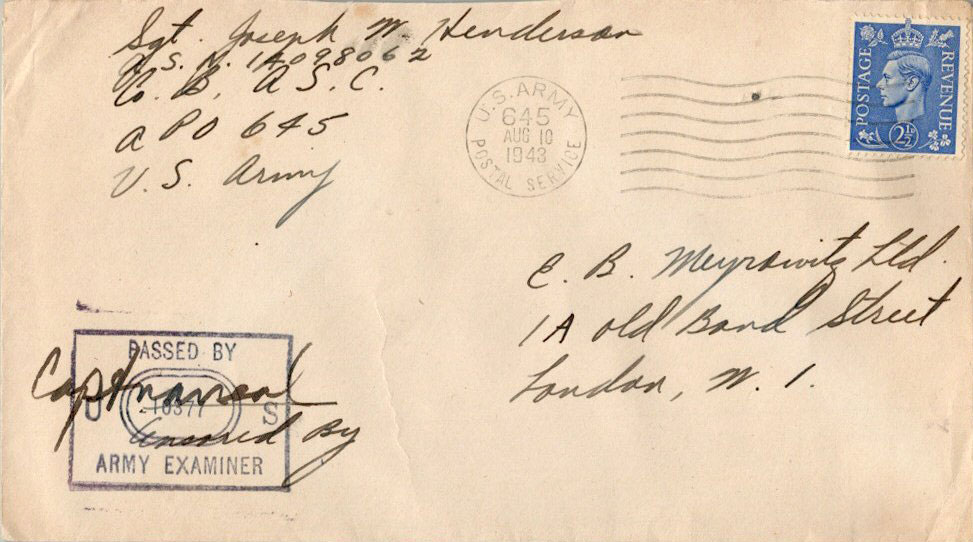 Sgt. Joseph W. Henderson
A.S.N. 14098062
Co. B, A.S.C.
APO 645
U.S. Army
U.S. ARMY
645
AUG 10
1943
POSTAL SERVICE
POSTAGE REVENUE
2½D
E. B. Meyrowitz Ltd.
1A Old Bond Street
London, W. 1.
PASSED BY
U 10377 S
Capt
Censored By
ARMY EXAMINER